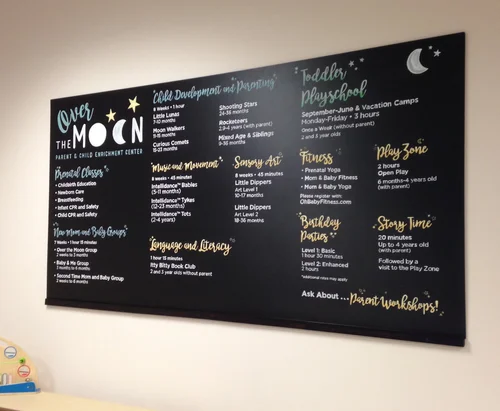 Over
THE MOON
PARENT & CHILD ENRICHMENT CENTER
Prenatal Classes
• Childbirth Education
• Newborn Care
• Breastfeeding
• Infant CPR and Safety
• Child CPR and Safety
New Mom and Baby Groups
7 Weeks • 1 hour 15 minutes
• Over the Moon Group
2 weeks to 3 months
• Baby & Me Group
3 months to 6 months
• Second Time Mom and Baby Group
2 weeks to 6 months
Child Development and Parenting
8 Weeks • 1 hour
Little Lunas
7-10 months
Moon Walkers
11-15 months
Curious Comets
16-23 months
Shooting Stars
24-36 months
Rocketeers
2.9-4 years (with parent)
Mixed Age & Siblings
9-36 months
Music and Movement
8 weeks • 45 minutes
Intellidance® Babies
(5-12 months)
Intellidance® Tykes
(12-23 months)
Intellidance® Tots
(2-4 years)
Sensory Art
8 weeks • 45 minutes
Little Dippers
Art Level 1
10-17 months
Little Dippers
Art Level 2
18-36 months
Language and Literacy
1 hour 15 minutes
Itty Bitty Book Club
2 and 3 year olds (without parent)
Toddler
Playschool
September-June & Vacation Camps
Monday-Friday • 3 hours
Once a Week (without parent)
2 and 3 year olds
Fitness
• Prenatal Yoga
• Mom & Baby Fitness
• Mom & Baby Yoga
Please register with:
OhBabyFitness.com
Play Zone
2 hours
Open Play
6 months-4 years old
(with parent)
Birthday
Parties
Level 1: Basic
1 hour 30 minutes
Level 2: Enhanced
2 hours
*additional rates may apply
Story Time
20 minutes
Up to 4 years old
(with parent)
Followed by a
visit to the Play Zone
Ask About ... Parent Workshops!